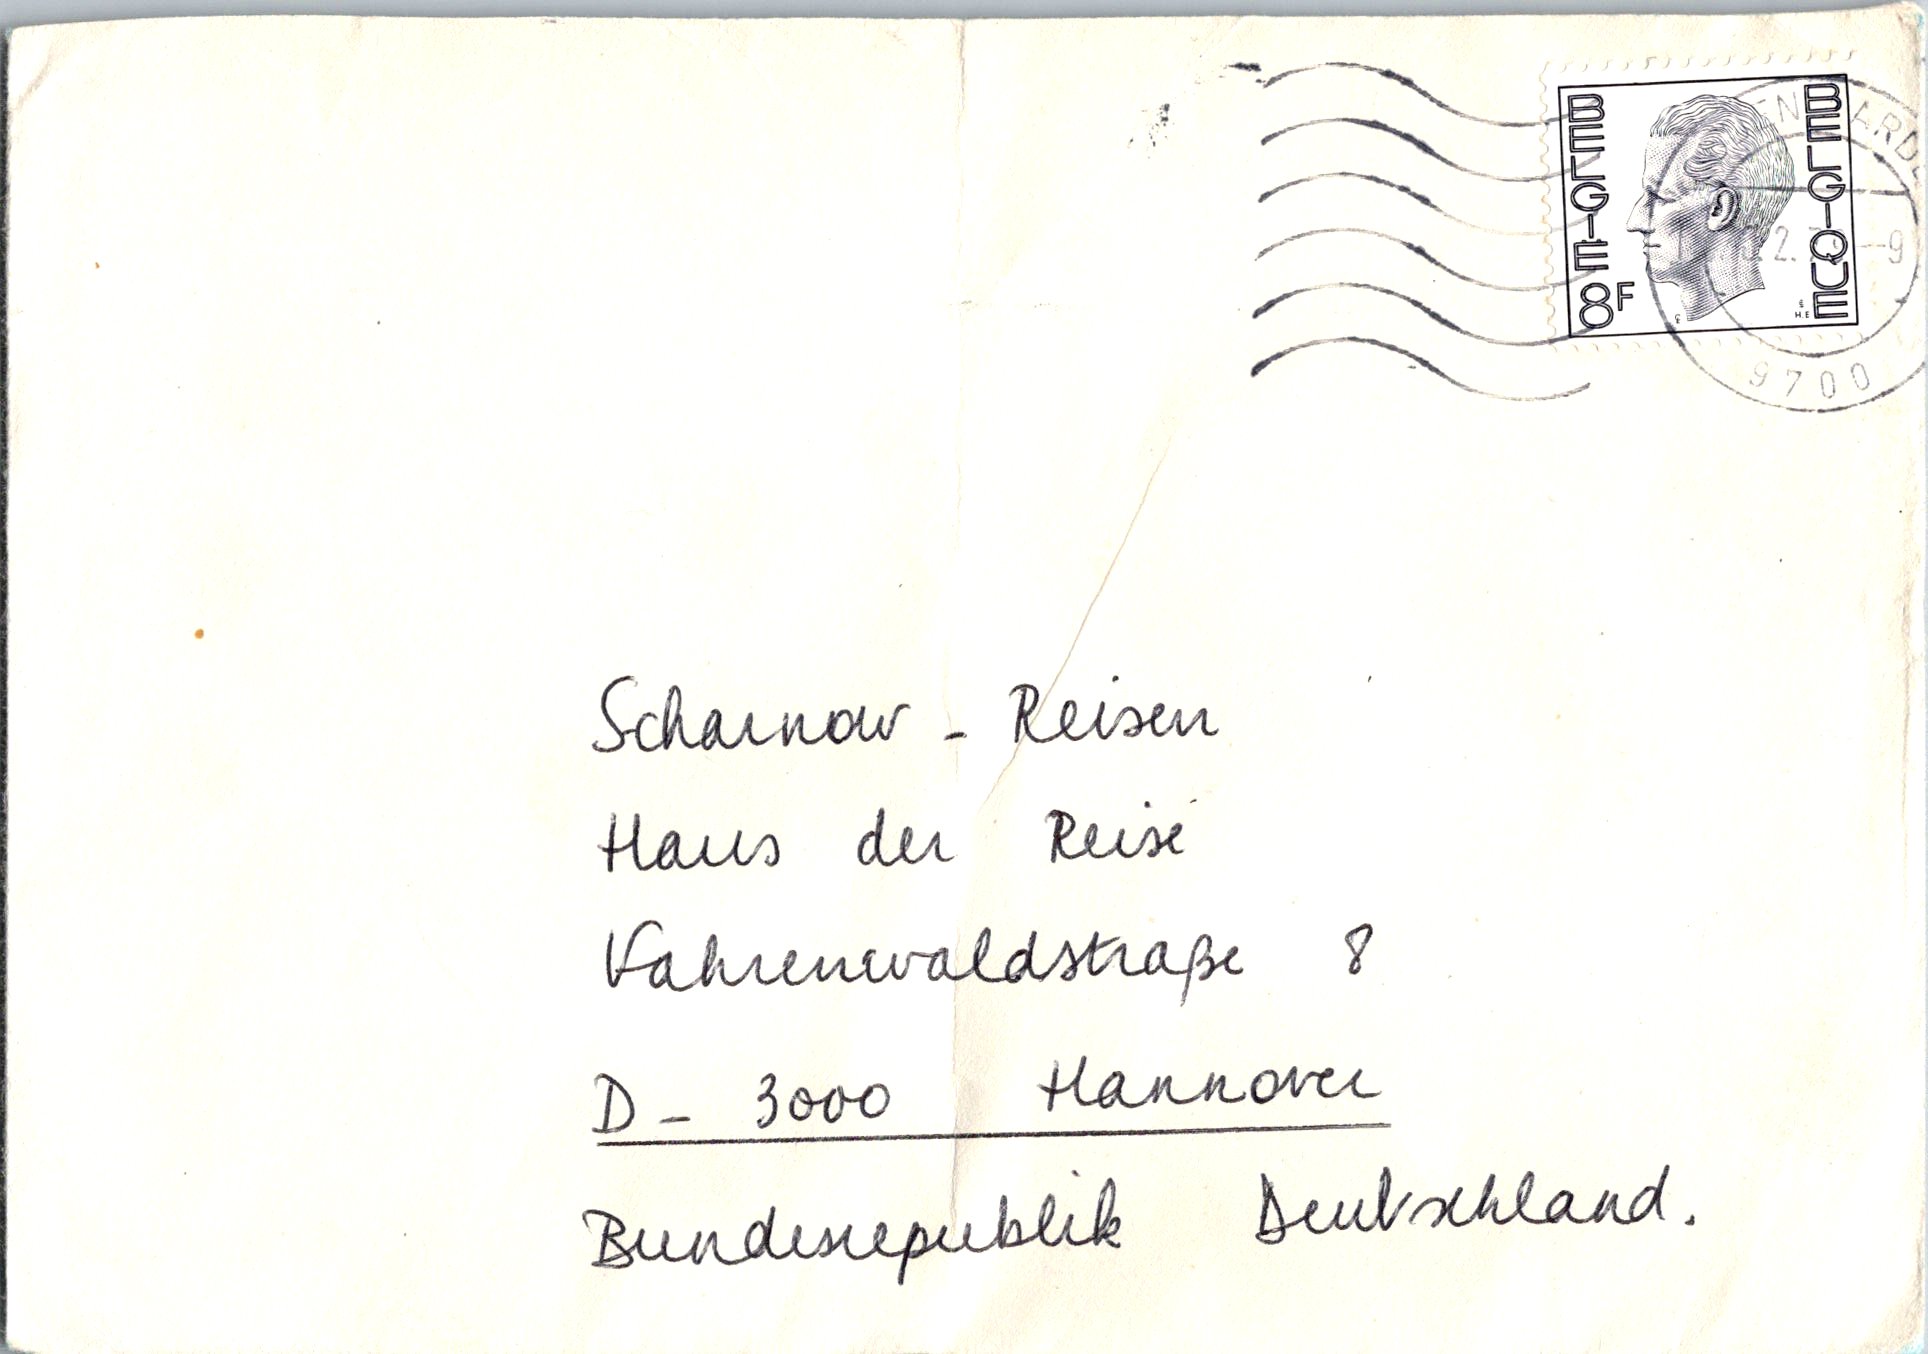 BELGIE 8F
BELGIQUE
9700
Scharnow - Reisen
Haus der Reise
Vahrenwaldstraße 8
D - 3000 Hannover
Bundesrepublik Deutschland.